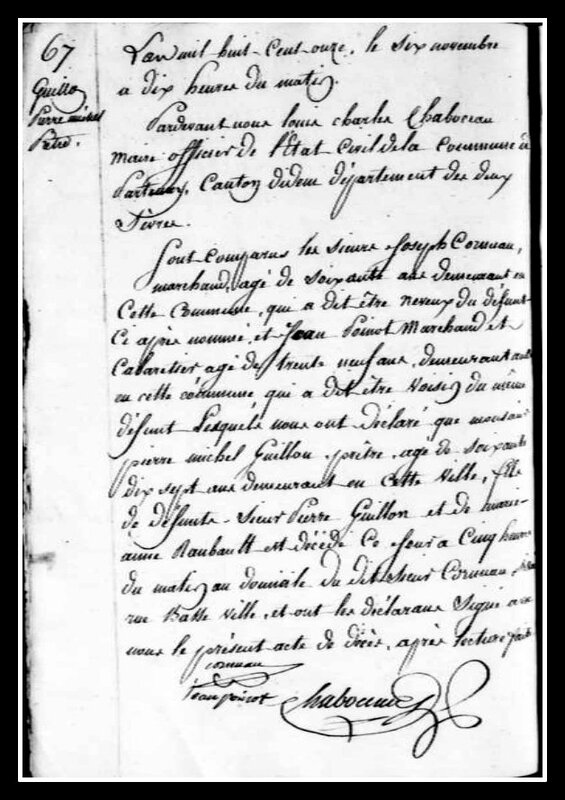 67
Guillon
Pierre michel
Prêtre.
L'an mil huit cent onze, le six novembre
a dix heures du matin.
Pardevant nous louis charles Chaboceau
Maire officier de l'Etat Civil de la Commune de
Partenay, Canton idem département des deux
Sèvres.
Sont comparus les sieurs Joseph Cornuau,
marchand, agé de soixante ans demeurant en
Cette Commune, qui a dit être neveux du défunt
Ci après nommé, et Jean Poinot Marchand et
Cabaretier agé de trente neuf ans, demeurant aussi
en cette commune qui a dit être voisin du même
défunt Lesquels nous ont déclaré que monsieur
pierre michel Guillon prêtre, agé de soixante
dix sept ans demeurant en cette ville, fils
de défunts Sieur Pierre Guillon et de marie
anne Raubault est décédé Ce jour a Cinq heures
du matin au domicile du dit Sieur Cornuau,
rue Basse ville, et ont les déclarans Signé avec
nous le présent acte de décès, après lecture faite
cornuau
Jean poinot Chaboceau